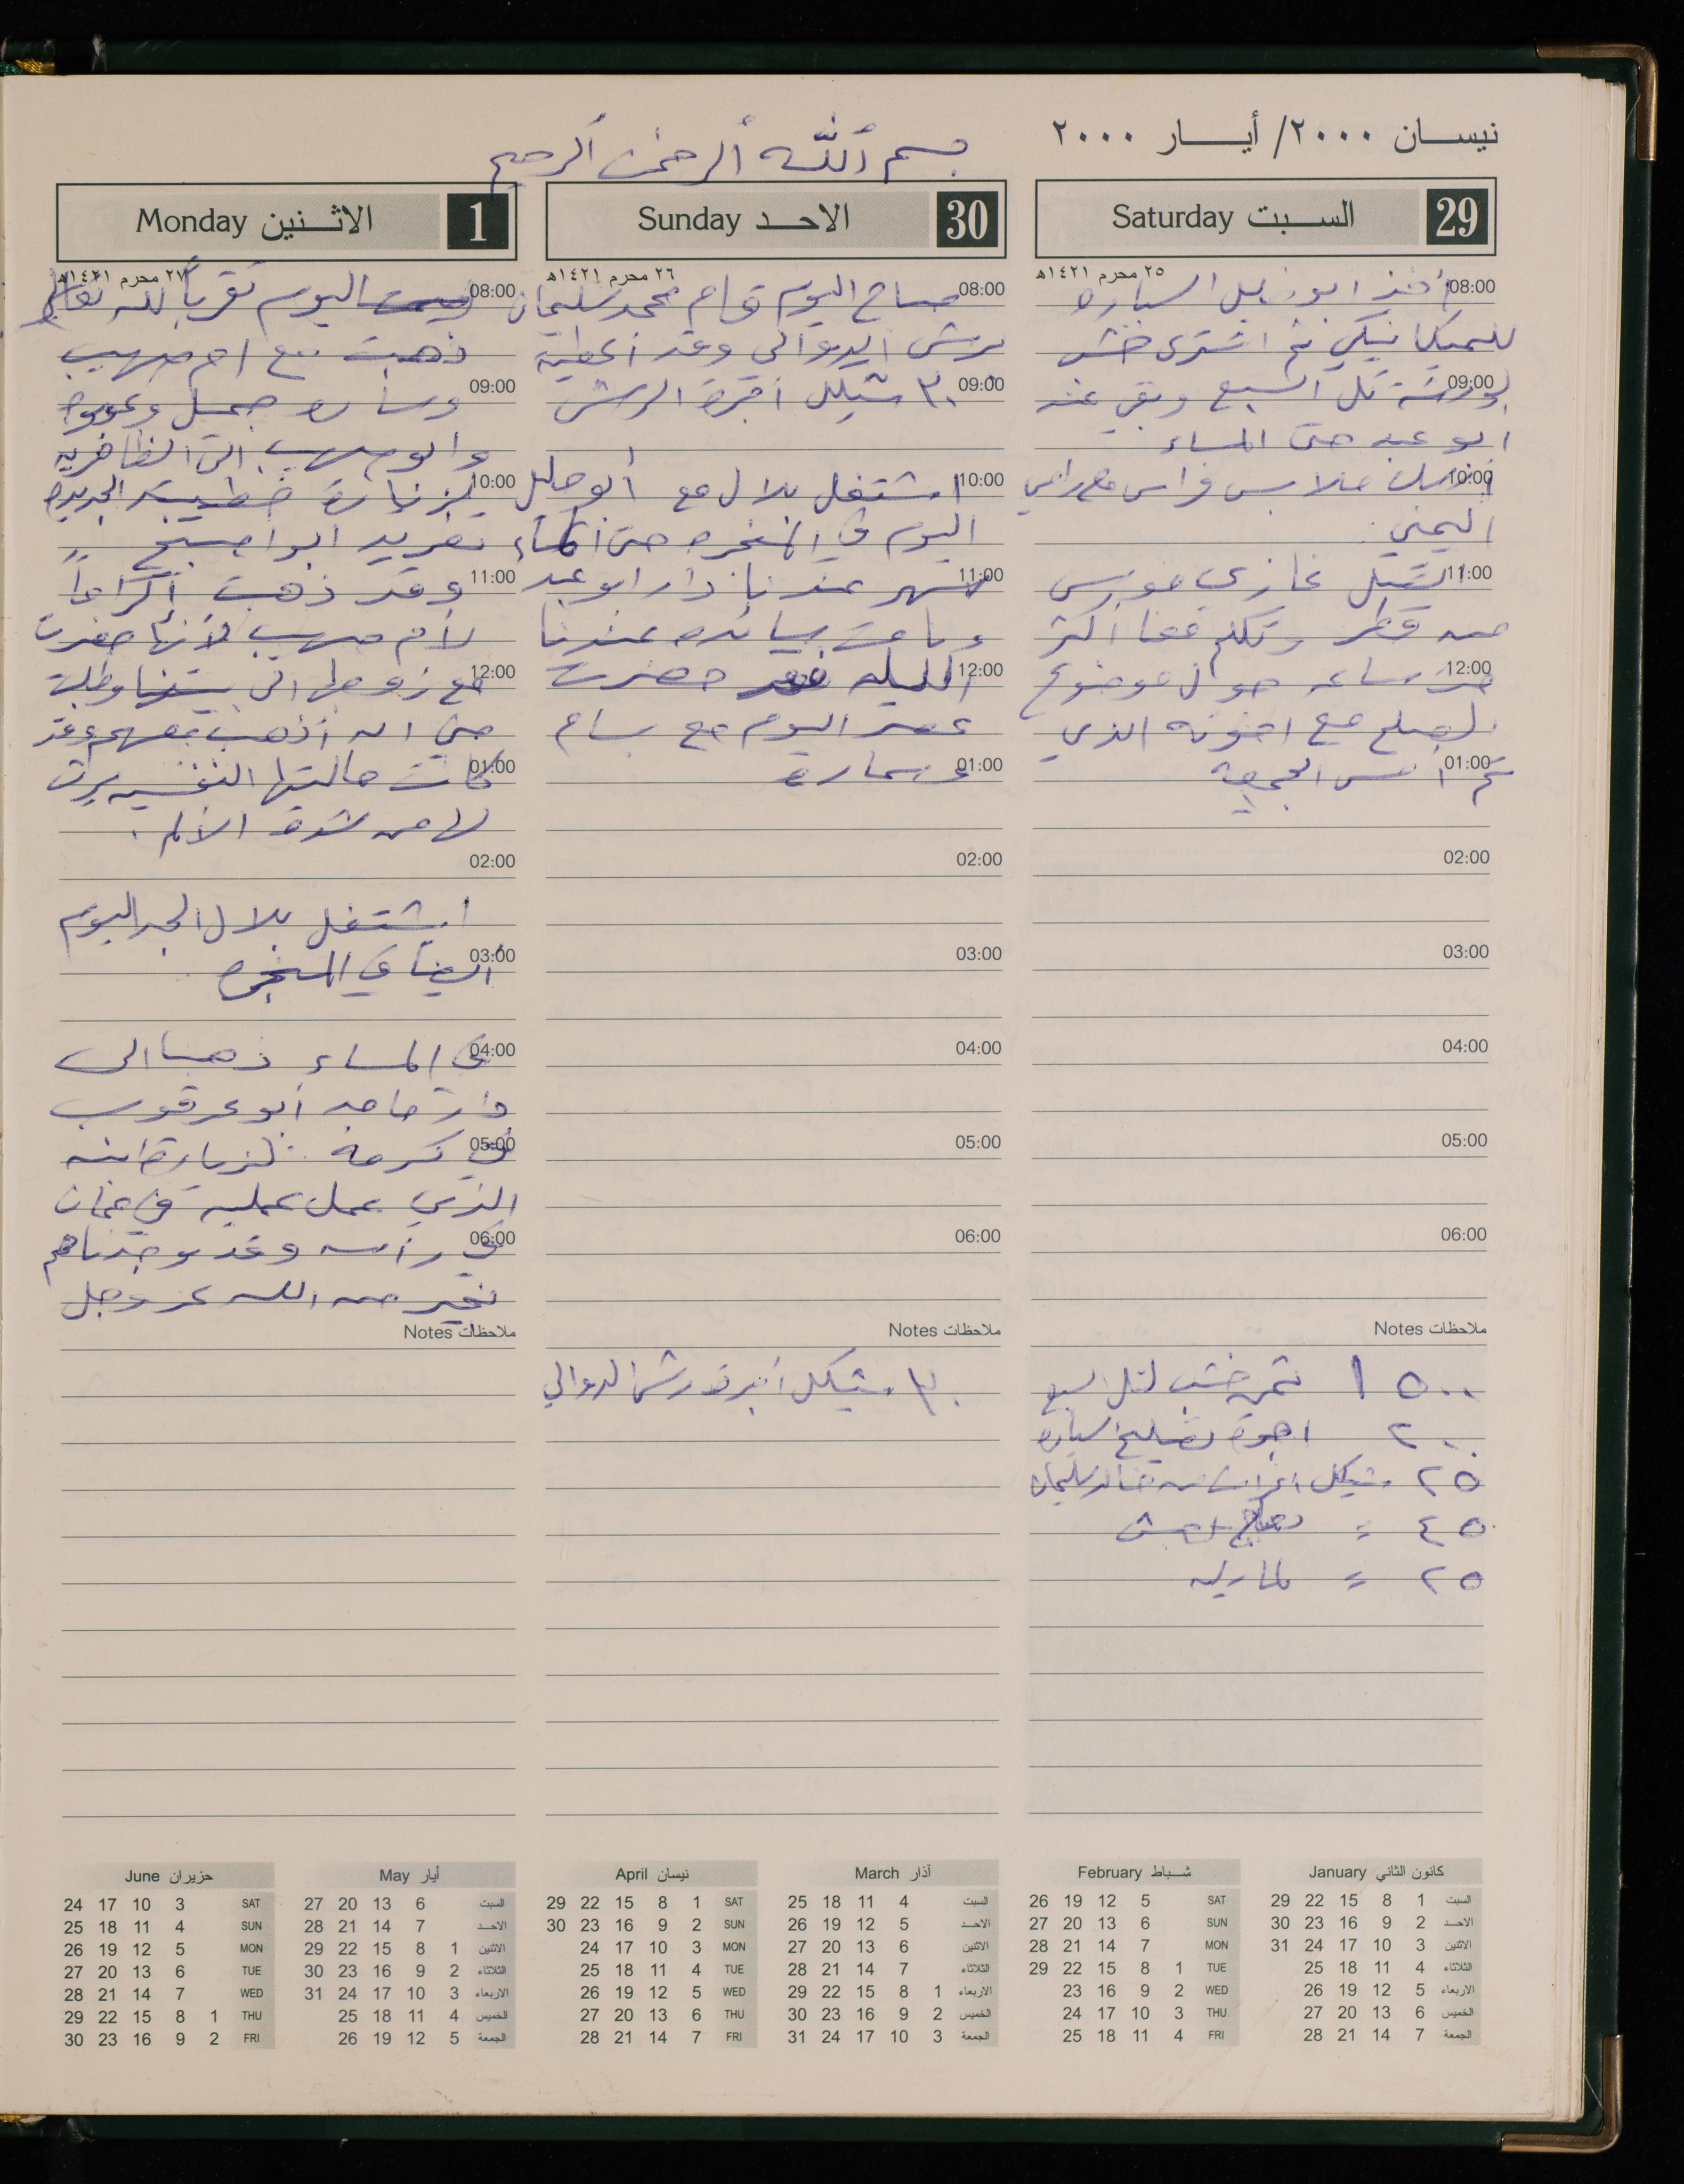 نيسان ٢٠٠٠/ أيار ٢٠٠٠
بسم الله الرحمن الرحيم
29 السبت Saturday
٢٥ محرم ١٤٢١هـ
08:00 أخذ ابو نبيل السياره
للميكانيكي ثم اشترى خشب
09:00 لورشة تل السبع وبقي عند
ابو عبد حتى المساء
10:00 ملابس فراس مع رامي
اليمني.
11:00 اتصل غازي مونس
من قطر وتكلم معنا اكثر
12:00 من ساعه حول موضوع
الصلح مع اخوته الذي
01:00 تم امس الجمعة
02:00
03:00
04:00
05:00
06:00
ملاحظات Notes
١٥٠٠ ثمن خشب لتل السبع
٢٠٠ اجرة تصليح السياره
٢٥ شيكل اغراض من خالد سليمان
٤٥ =
٢٥ =
30 الاحد Sunday
٢٦ محرم ١٤٢١هـ
08:00 صباح اليوم قام محمد سليمان
برش الدوالي وقد أعطيته
09:00 ٣٠ شيكل أجرة الرش
10:00 اشتغل بلال مع أبو خليل
اليوم في المنجره حتى المساء
11:00 سهر عندنا دار ابو عبد
وناعت بيسانه عندنا
12:00 الليله فقد حضرت
عصر اليوم مع بسام
01:00 وساره
02:00
03:00
04:00
05:00
06:00
ملاحظات Notes
٣٠ شيكل أجرة رش الدوالي
1 الاثنين Monday
٢٧ محرم ١٤٢١هـ
08:00 اليوم تقرباً لله تعالى
ذهبت مع ام صهيب
09:00 وساره جميل وعوده
وابو صهيب الى الظاهريه
10:00 لزيارة خطيبته الجديدة
تغريد ابو اصبيح
11:00 وقد ذهبت إكراماً
لأم صهيب لأنها حضرت
12:00 مع زوجها الى بيتنا وطلبت
مني ان أذهب معهم وقد
01:00 كانت حالتها النفسيه يرثى
لها من شدة الألم.
02:00
اشتغل بلال الجمل اليوم
03:00 أيضاً في المنجره
04:00 في المساء ذهبنا الى
دار ماجد أبو عرقوب
05:00 في كرمة لزيارة ابنه
الذي عمل عمليه في عمان
06:00 في رأسه وقد وجدناهم
بخير من الله عز وجل
ملاحظات Notes
كانون الثاني January
السبت 1 8 15 22 29
الاحد 2 9 16 23 30
الاثنين 3 10 17 24 31
الثلاثاء 4 11 18 25
الاربعاء 5 12 19 26
الخميس 6 13 20 27
الجمعة 7 14 21 28
شباط February
SAT 5 12 19 26
SUN 6 13 20 27
MON 7 14 21 28
TUE 1 8 15 22 29
WED 2 9 16 23
THU 3 10 17 24
FRI 4 11 18 25
آذار March
السبت 4 11 18 25
الاحد 5 12 19 26
الاثنين 6 13 20 27
الثلاثاء 7 14 21 28
الاربعاء 1 8 15 22 29
الخميس 2 9 16 23 30
الجمعة 3 10 17 24 31
نيسان April
SAT 1 8 15 22 29
SUN 2 9 16 23 30
MON 3 10 17 24
TUE 4 11 18 25
WED 5 12 19 26
THU 6 13 20 27
FRI 7 14 21 28
أيار May
السبت 6 13 20 27
الاحد 7 14 21 28
الاثنين 1 8 15 22 29
الثلاثاء 2 9 16 23 30
الاربعاء 3 10 17 24 31
الخميس 4 11 18 25
الجمعة 5 12 19 26
حزيران June
SAT 3 10 17 24
SUN 4 11 18 25
MON 5 12 19 26
TUE 6 13 20 27
WED 7 14 21 28
THU 1 8 15 22 29
FRI 2 9 16 23 30